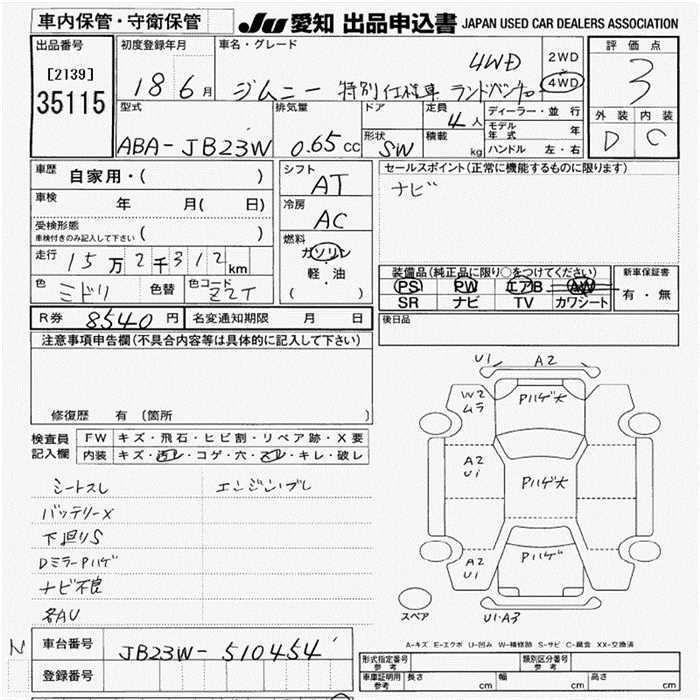 車内保管・守衛保管 JU 愛知 出品申込書 JAPAN USED CAR DEALERS ASSOCIATION
出品番号 初度登録年月 車名・グレード 評価点
[2139] 35115
18 6月 ジムニー 特別仕様車 ランドベンチャー 4WD
2WD 4WD
3
外装 内装
D C
型式 排気量 ドア 定員 ディーラー・並行
ABA-JB23W 0.65cc 形状 SW 4人 積載 kg
モデル年式 年
ハンドル 左・右
車歴 自家用・( )
車検 年 月( 日)
受検形態 車検付きのみ記入して下さい ( )
走行 15万2千312km
色 ミドリ 色替 色コード ZZT
R券 8540円 名変通知期限 月 日
シフト AT
冷房 AC
燃料 ガソリン
軽・油
( )
セールスポイント(正常に機能するものに限ります)
ナビ
装備品(純正品に限り○をつけてください) 新車保証書
PS PW エアB AW 有・無
SR ナビ TV カワシート
後日品
注意事項申告欄(不具合内容等は具体的に記入して下さい)
修復歴 有 (箇所 )
検査員記入欄 FW キズ・飛石・ヒビ割・リペア跡・X要
内装 キズ・汚レ・コゲ・穴・スレ・キレ・破レ
シートスレ エンジンブレ
バッテリーX
下廻りS
DミラーPハゲ
ナビ不良
各AU
U1 A2
W2 ムラ
Pハゲ大
A2 U1
Pハゲ大
A2 U1
Pハゲ
U1・A3
スペア
A-キズ E-エクボ U-凹み W-補修跡 S-サビ C-腐食 XX-交換済
N 車台番号 JB23W-510454
登録番号
形式指定番号 参考 類別区分番号 参考
車庫証明用 参考 長さ cm 幅 cm 高さ cm